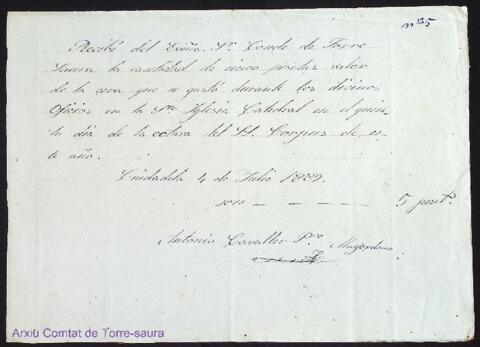 nº 35
Recibí del Exmo. Sr. Conde de Torre
Saura la cantidad de cinco pesetas valor
de la cera que se gastó durante los divinos
Oficios en la Sta Iglesia Catedral en el quin
to dia de la octava del SS. Corpus de es
te año.
Ciudadela 4 de Julio 1889.
son — — — — 5 peset.s
Antonio Cavaller Pro Mayordomo
Arxiu Comtat de Torre-saura